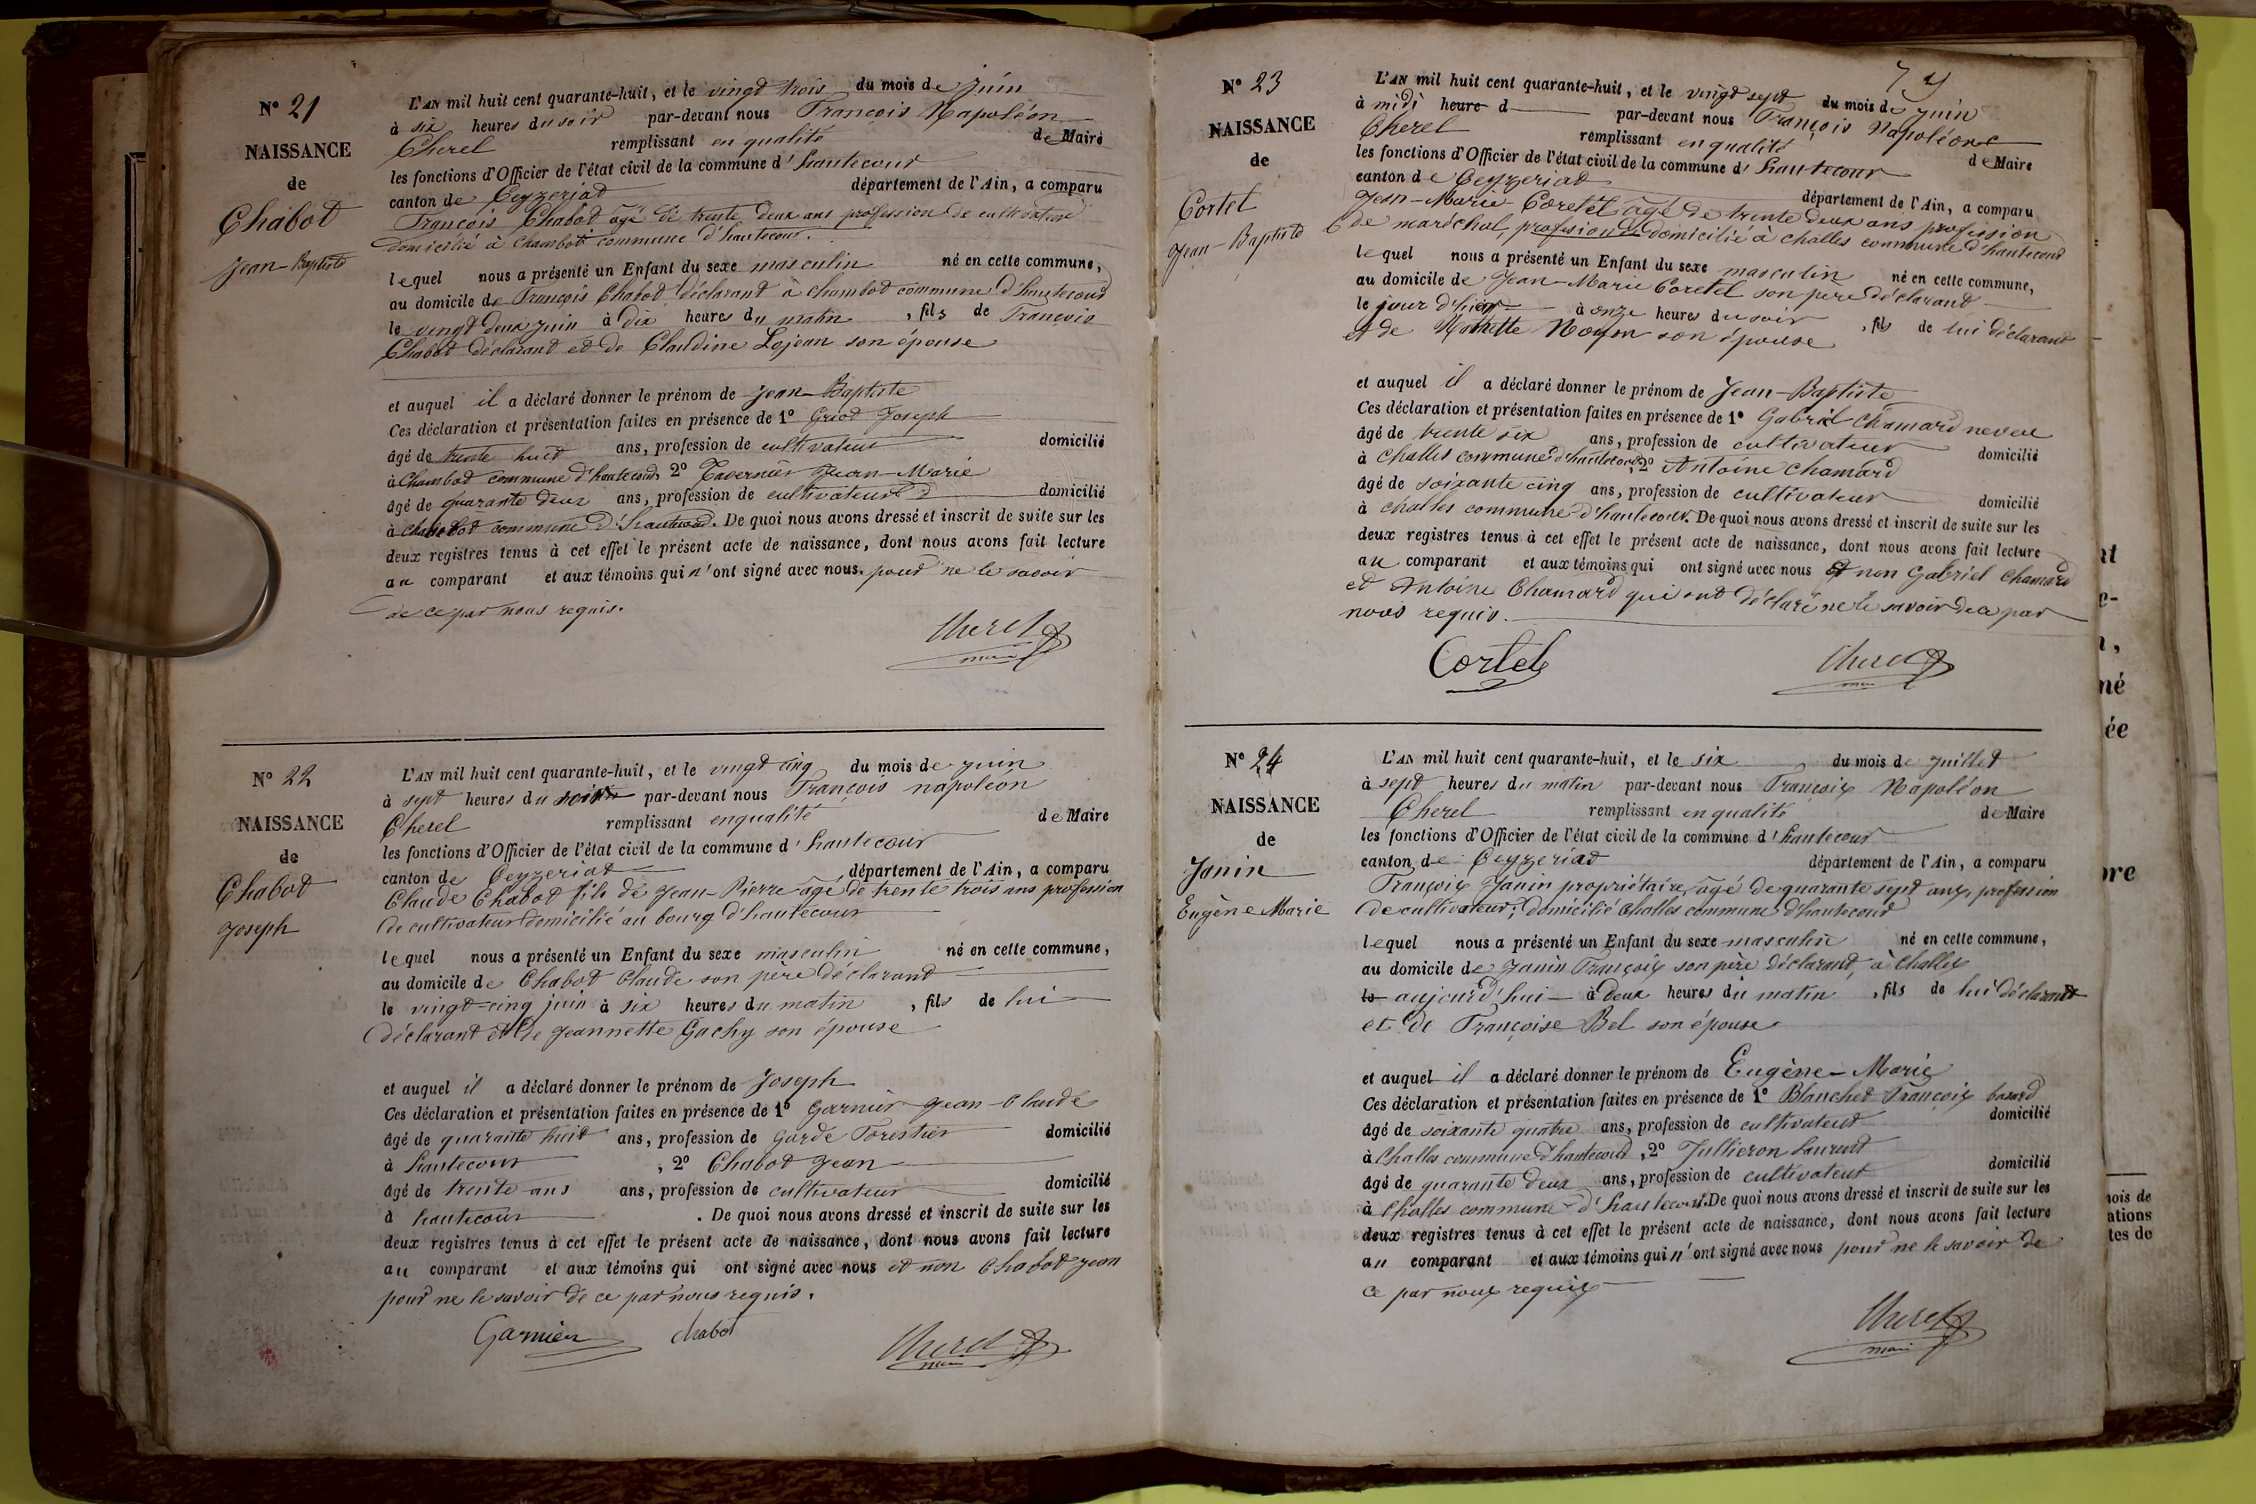 N° 21
NAISSANCE
de
Chabot
Jean-Baptiste
L'AN mil huit cent quarante-huit, et le vingt trois du mois de juin
à six heures du soir par-devant nous François Napoléon
Cherel remplissant en qualité de Maire
les fonctions d'Officier de l'état civil de la commune d'hautecour
canton de Ceyzeriat département de l'Ain, a comparu
François Chabot âgé de trente deux ans profession de cultivateur
domicilié à Chambot commune d'hautecour.
lequel nous a présenté un Enfant du sexe masculin né en cette commune,
au domicile de François Chabot déclarant à Chambot commune d'hautecour
le vingt deux juin à dix heures du matin, fils de François
Chabot déclarant et de Claudine Lojean son épouse
et auquel il a déclaré donner le prénom de Jean-Baptiste
Ces déclaration et présentation faites en présence de 1° Griot Joseph
âgé de trente huit ans, profession de cultivateur domicilié
à Chambot commune d'hautecour, 2° Tavernier Jean-Marie
âgé de quarante deux ans, profession de cultivateur domicilié
à Chambot commune d'hautecour. De quoi nous avons dressé et inscrit de suite sur les
deux registres tenus à cet effet le présent acte de naissance, dont nous avons fait lecture
au comparant et aux témoins qui n'ont signé avec nous. pour ne le savoir
de ce par nous requis.
Cherel
maire
N° 22
NAISSANCE
de
Chabot
Joseph
L'AN mil huit cent quarante-huit, et le vingt cinq du mois de juin
à sept heures du soir par-devant nous François napoléon
Cherel remplissant en qualité de Maire
les fonctions d'Officier de l'état civil de la commune d'hautecour
canton de Ceyzeriat département de l'Ain, a comparu
Claude Chabot fils de Jean-Pierre âgé de trente trois ans profession
de cultivateur domicilié au bourg d'hautecour
lequel nous a présenté un Enfant du sexe masculin né en cette commune,
au domicile de Chabot Claude son père déclarant
le vingt-cinq juin à six heures du matin, fils de lui
déclarant et de Jeannette Gachy son épouse
et auquel il a déclaré donner le prénom de Joseph
Ces déclaration et présentation faites en présence de 1° Garnier Jean-Claude
âgé de quarante huit ans, profession de Garde Forestier domicilié
à hautecour, 2° Chabot Jean
âgé de trente ans ans, profession de cultivateur domicilié
à hautecour. De quoi nous avons dressé et inscrit de suite sur les
deux registres tenus à cet effet le présent acte de naissance, dont nous avons fait lecture
au comparant et aux témoins qui ont signé avec nous et non Chabot Jean
pour ne le savoir de ce par nous requis.
Garnier chabot Cherel
maire
N° 23
NAISSANCE
de
Cortel
Jean-Baptiste
L'AN mil huit cent quarante-huit, et le vingt sept du mois de juin
à midi heure d par-devant nous François Napoléon
Cherel remplissant en qualité de Maire
les fonctions d'Officier de l'état civil de la commune d'hautecour
canton de Ceyzeriat département de l'Ain, a comparu
Jean-Marie Coretel âgé de trente deux ans profession
de maréchal, profession domicilié à challes commune d'hautecour
lequel nous a présenté un Enfant du sexe masculin né en cette commune,
au domicile de Jean-Marie Coretel son père déclarant
le jour d'hier à onze heures du soir, fils de lui déclarant
et de son épouse
et auquel il a déclaré donner le prénom de Jean-Baptiste
Ces déclaration et présentation faites en présence de 1° Gabriel Chamard neveu
âgé de trente six ans, profession de cultivateur domicilié
à Challes commune d'hautecour, 2° Antoine Chamard
âgé de soixante cinq ans, profession de cultivateur domicilié
à challes commune d'hautecour. De quoi nous avons dressé et inscrit de suite sur les
deux registres tenus à cet effet le présent acte de naissance, dont nous avons fait lecture
au comparant et aux témoins qui ont signé avec nous et non Gabriel Chamard
et Antoine Chamard qui ont déclaré ne le savoir de ce par
nous requis.
Cortel Cherel
maire
N° 24
NAISSANCE
de
Janin
Eugène Marie
L'AN mil huit cent quarante-huit, et le six du mois de juillet
à sept heures du matin par-devant nous François Napoléon
Cherel remplissant en qualité de Maire
les fonctions d'Officier de l'état civil de la commune d'hautecour
canton de Ceyzeriat département de l'Ain, a comparu
François Janin propriétaire, âgé de quarante sept ans, profession
de cultivateur, domicilié Challes commune d'hautecour
lequel nous a présenté un Enfant du sexe masculin né en cette commune,
au domicile de Janin François son père déclarant, à Challes
le aujourd'hui à deux heures du matin, fils de lui déclarant
et de Françoise Bel son épouse
et auquel il a déclaré donner le prénom de Eugène-Marie
Ces déclaration et présentation faites en présence de 1° Blanchet François
âgé de soixante quatre ans, profession de cultivateur domicilié
à Challes commune d'hautecour, 2° Jullieron Laurent
âgé de quarante deux ans, profession de cultivateur domicilié
à Challes commune d'hautecour. De quoi nous avons dressé et inscrit de suite sur les
deux registres tenus à cet effet le présent acte de naissance, dont nous avons fait lecture
au comparant et aux témoins qui n'ont signé avec nous pour ne le savoir de
ce par nous requis
Cherel
maire